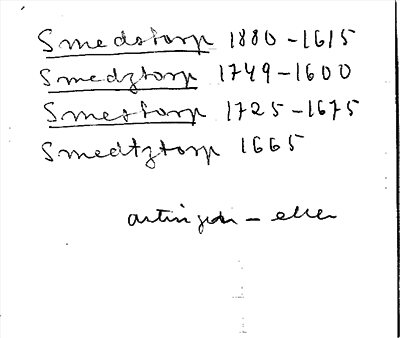 Smedstorp 1880-1615
Smedztorp 1749-1600
Smestorp 1725-1675
Smedtztorp 1665
antingen - eller